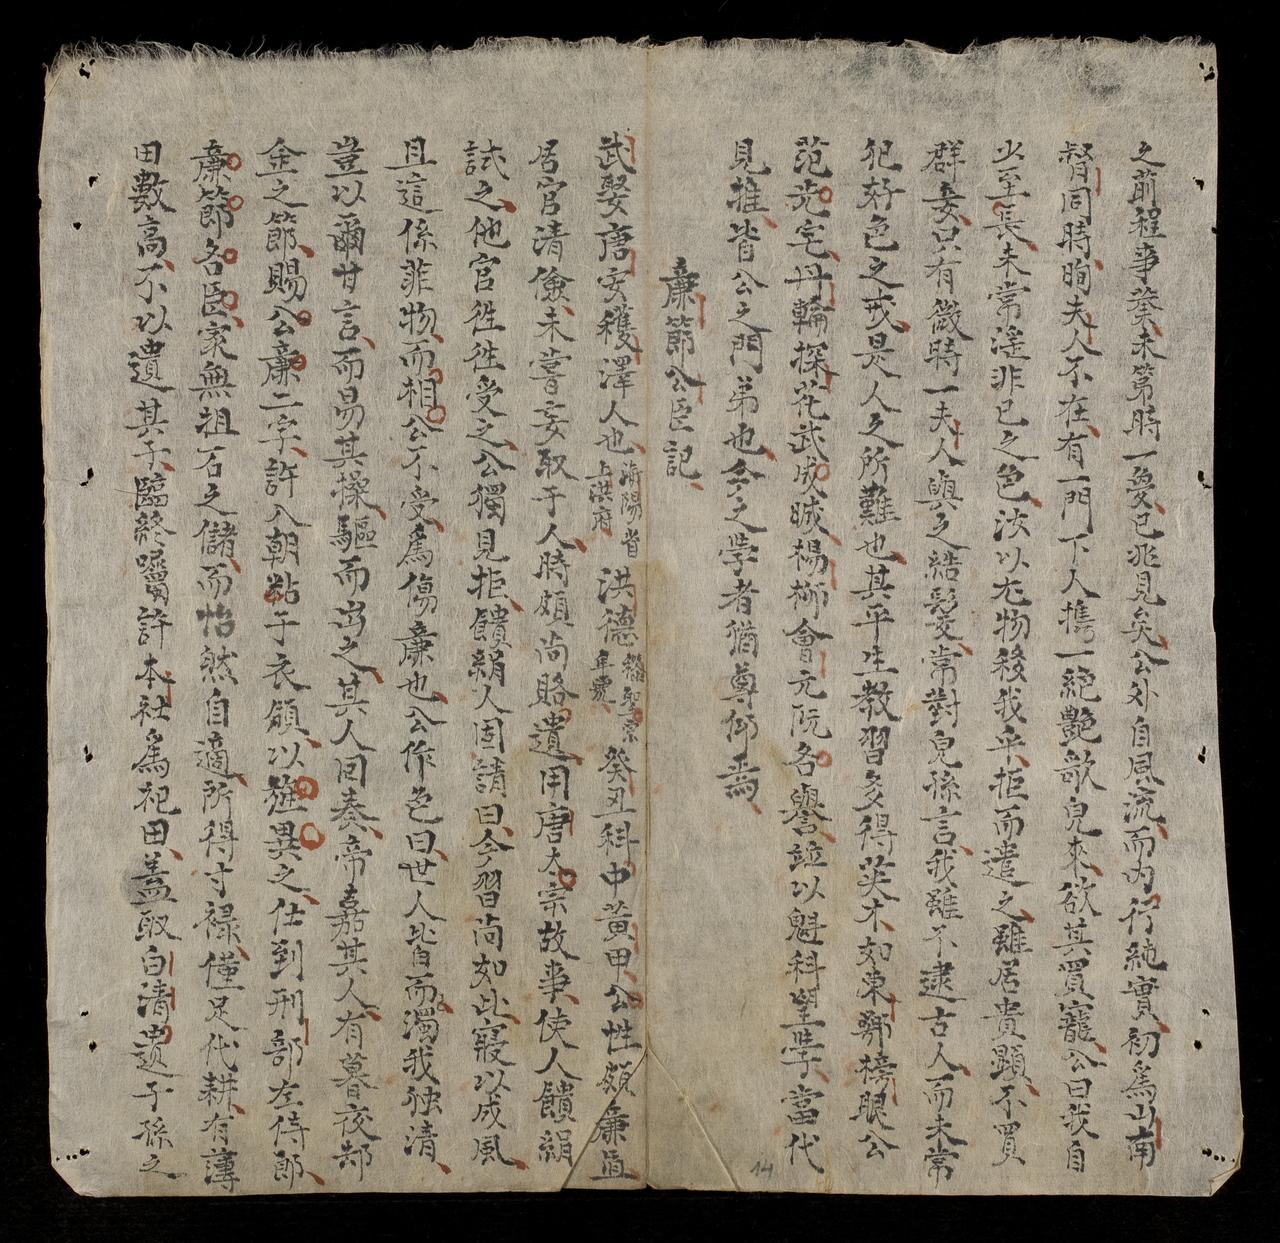 之前程事發未第時一夢已兆見矣公外自風流而內行純實初爲山南
督同時晌夫人不在有一門下人携一絕艷歌兒來欲其買寵公曰我自
少至長未常淫非已之色汝以尤物移我乎拒而遣之雖居貴顯不買
群妾只有微時一夫人與之結髮常對兒孫言我雖不逮古人而未常
犯好色之戒是人之所難也其平生教習多得英才如東鄂榜眼公
范光宅丹輪探花武成晠楊柳會元阮各譽並以魁科望學當代
見推皆公之門弟也今之學者猶尊仰焉
廉節公臣記
武娶唐安穫澤人也海陽省上洪府洪德黎聖宗年號癸丑科中黃甲公性頗廉直
居官清儉未嘗妄取于人時頗尚賂遺用唐太宗故事使人饋絹
試之他官徃徃受之公獨見拒饋絹人固請曰今習尚如此寢以成風
且這係菲物而相公不受爲傷廉也公作色曰世人皆而濁我独清
豈以爾甘言而易其操驅而出之其人回奏帝嘉其人有暮夜却
金之節賜公廉二字許入朝粘于衣領以旌異之仕到刑部左侍郎
廉節各臣家無祖石之儲而怡然自適所得寸祿僅足代耕有薄
田數高不以遺其子臨終囑許本社爲祀田蓋取白清遺子孫之